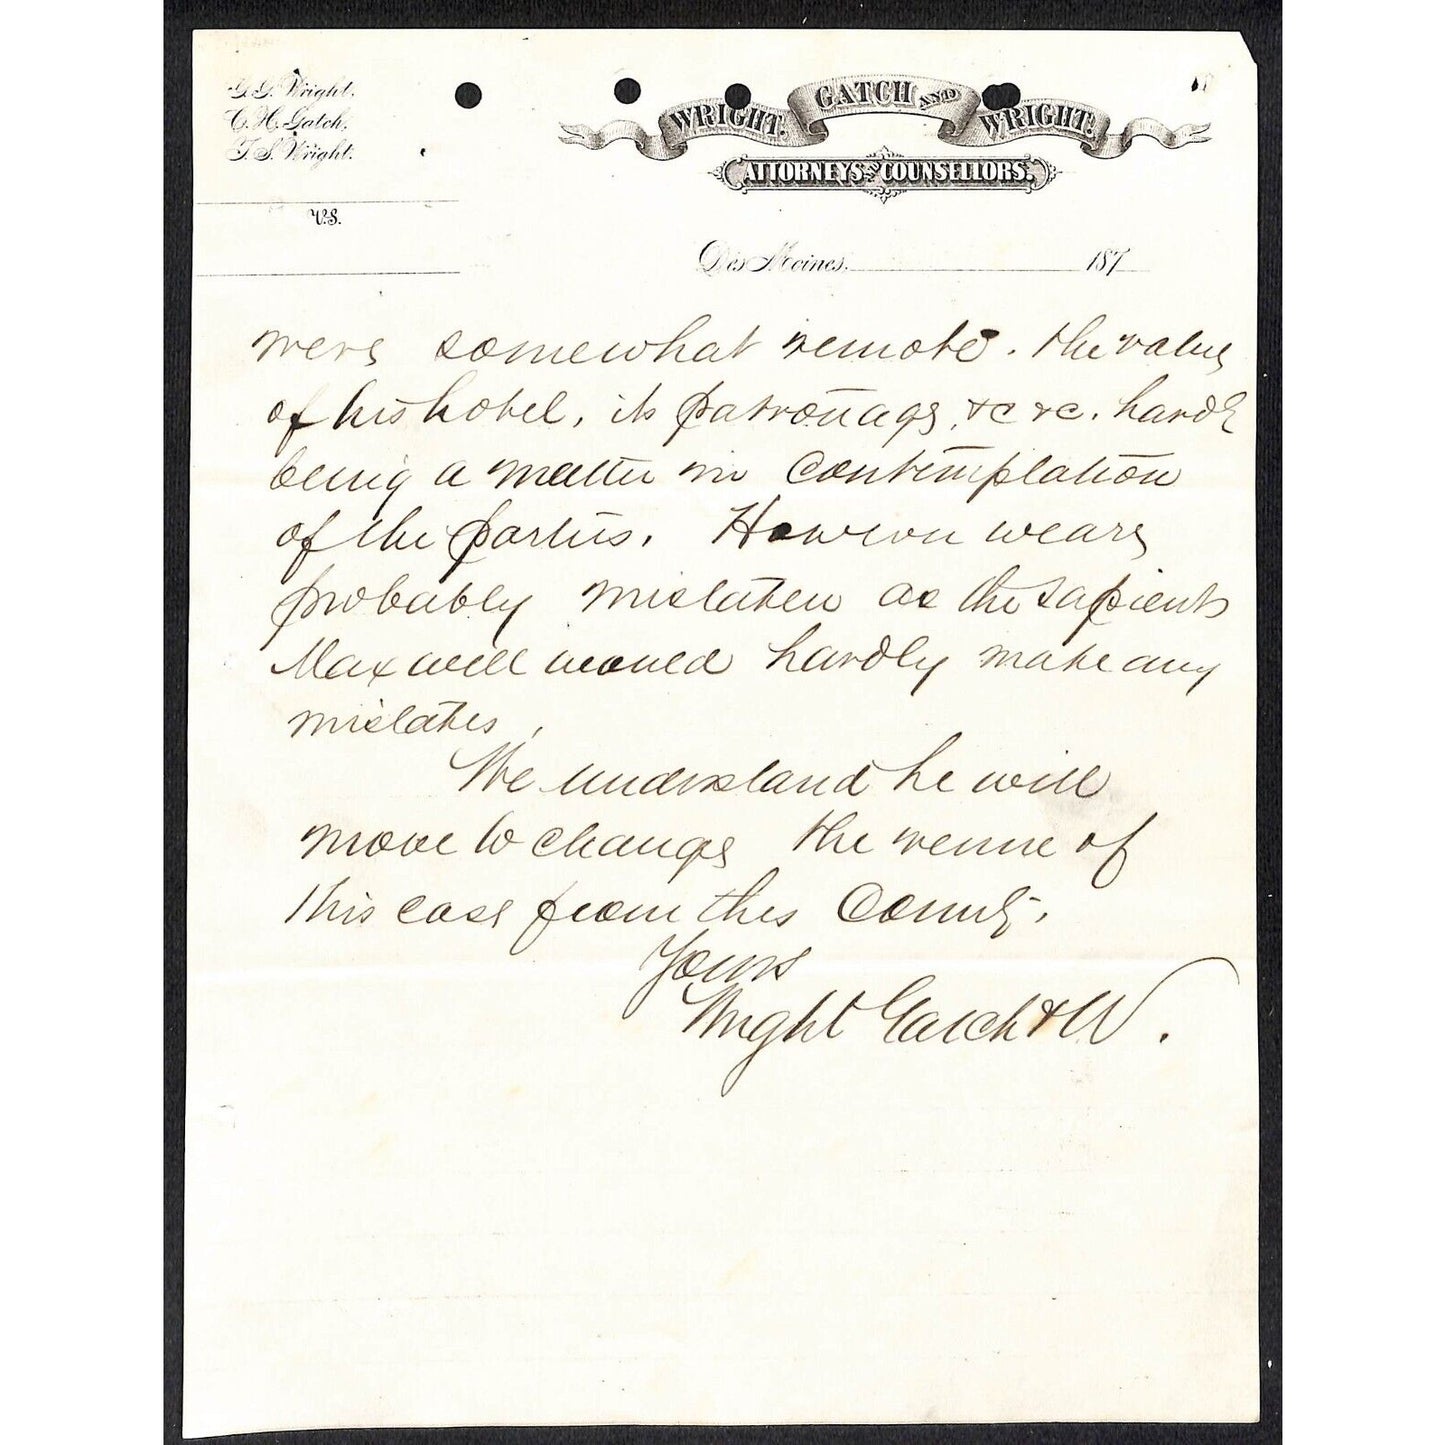 G. G. Wright.
C. H. Gatch.
T. S. Wright.
WRIGHT, GATCH AND WRIGHT.
ATTORNEYS AND COUNSELLORS.
V.S.
Des Moines, 187
were somewhat remote. the value
of his hotel, its patronage, &c &c. hardly
being a matter in contemplation
of the parties. However we are
probably mistaken as the sapient
Maxwell would hardly make any
mistakes.
We understand he will
move to change the venue of
this case from this County.
Yours
Wright Gatch & W.